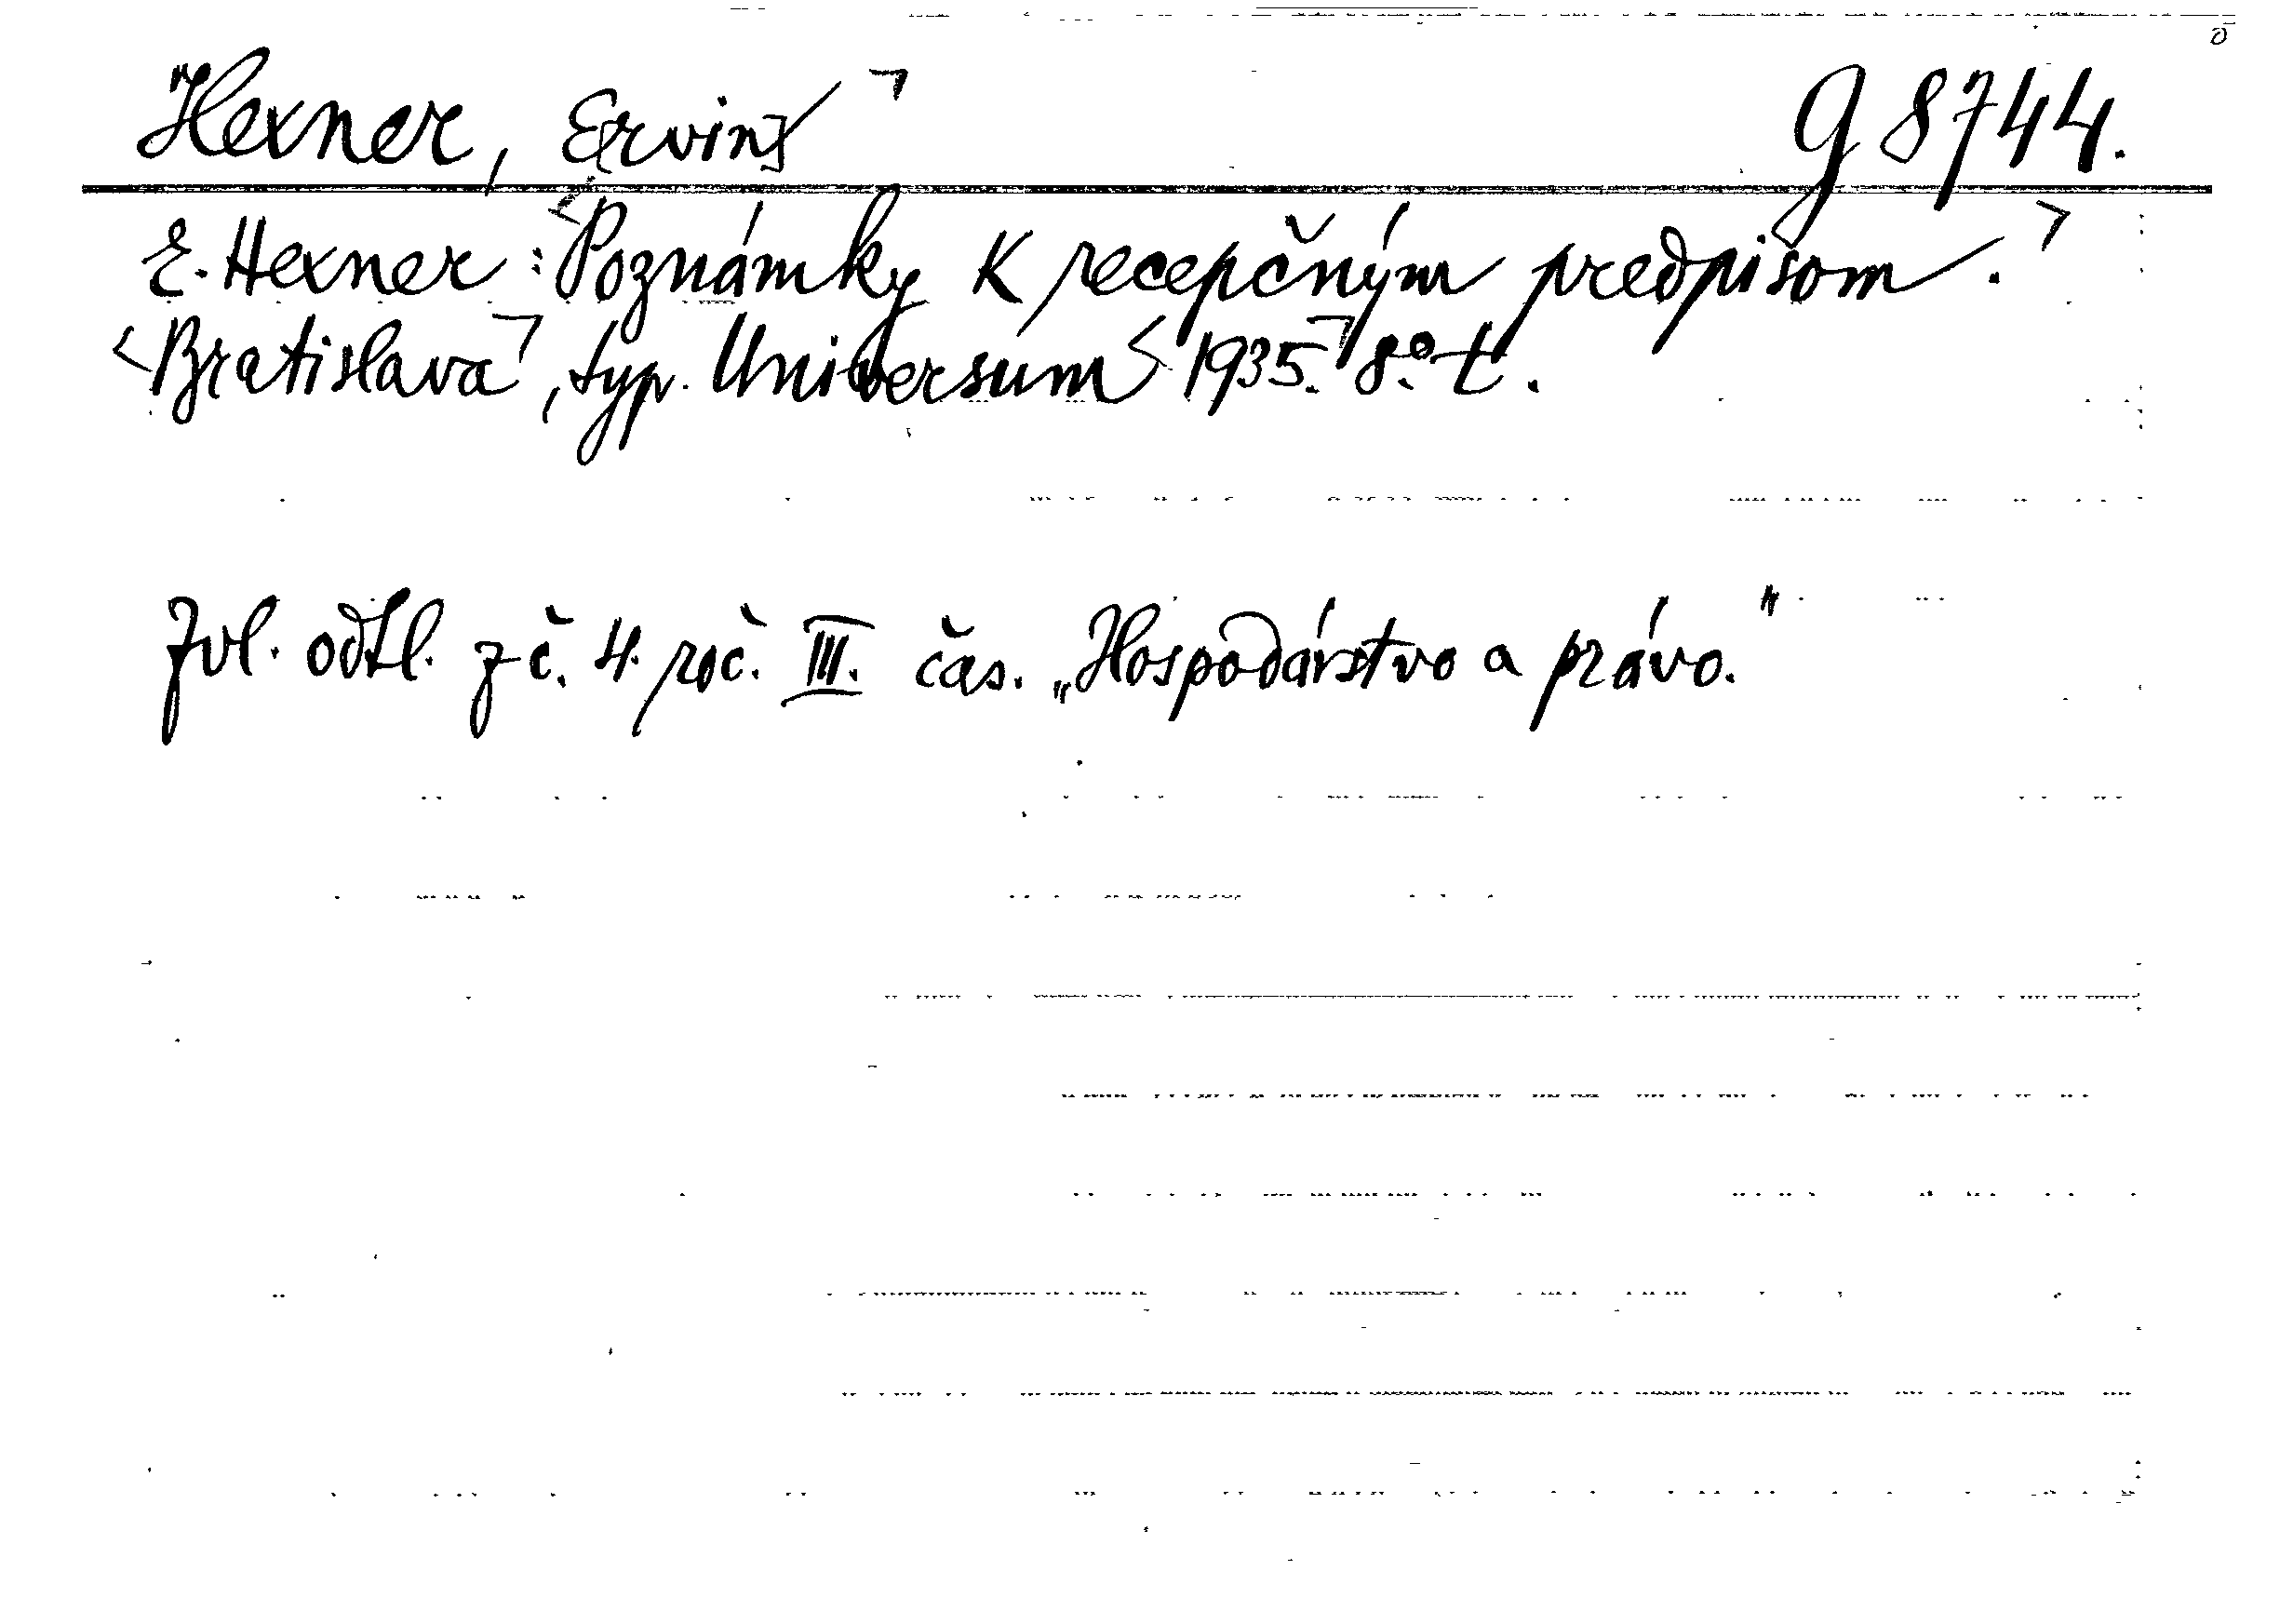 Hexner, E[rvin]
G 8744.
E. Hexner: Poznámky k recepčným predpisom.
Bratislava, typ. Universum 1935. 8.° t.
Zvl. odtl. z č. 4. roč. III. čas. „Hospodárstvo a právo."